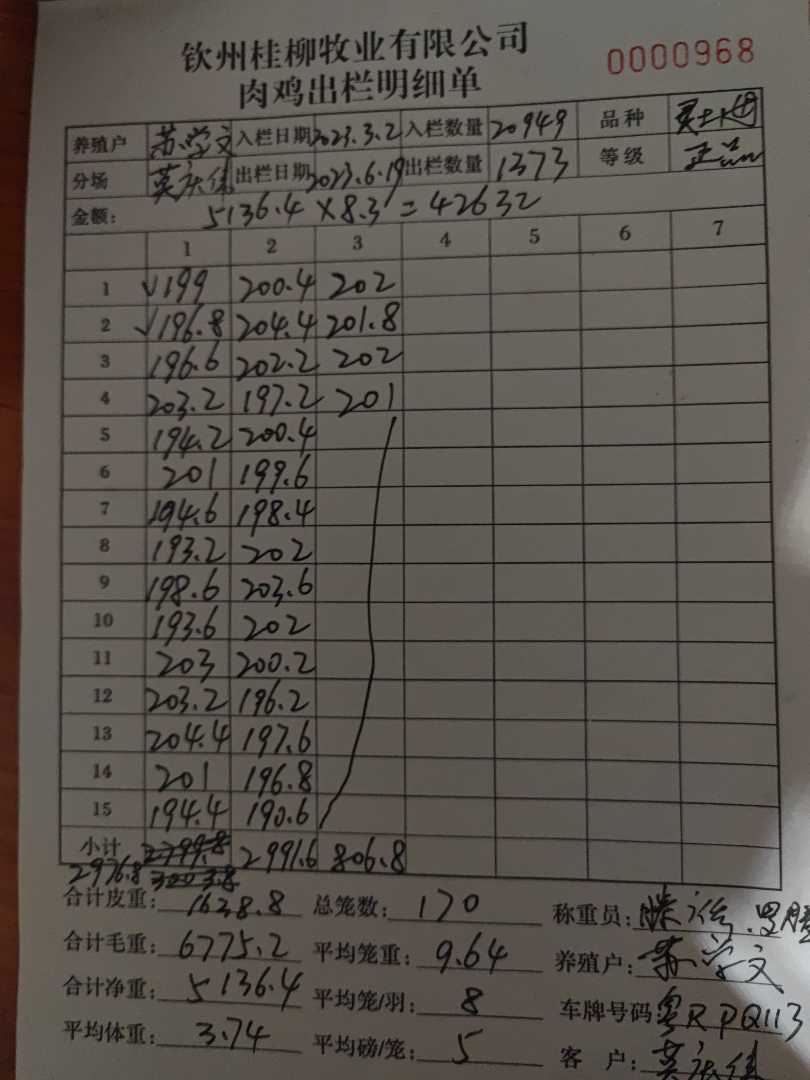 钦州桂柳牧业有限公司
0000968
肉鸡出栏明细单
养殖户 苏学文 入栏日期 2023.3.2 入栏数量 20949 品种
分场 入栏日期 2023.6.19 出栏数量 1373 等级 正品
金额: 5136.4×8.3=42632
1 2 3 4 5 6 7
1 √199 200.4 202
2 √196.8 204.4 201.8
3 196.6 202.2 202
4 203.2 197.2 201
5 194.2 200.4
6 201 199.6
7 194.6 198.4
8 193.2 202
9 198.6 203.6
10 193.6 202
11 203 200.2
12 203.2 196.2
13 204.4 197.6
14 201 196.8
15 194.4 190.6
小计 2799.8 2991.6 806.8
2976.8 3003.8
合计皮重: 1638.8 总笼数: 170 称重员:
合计毛重: 6775.2 平均笼重: 9.64 养殖户: 苏学文
合计净重: 5136.4 平均笼/羽: 8 车牌号码 粤RPQ113
平均体重: 3.74 平均磅/笼: 5 客 户: